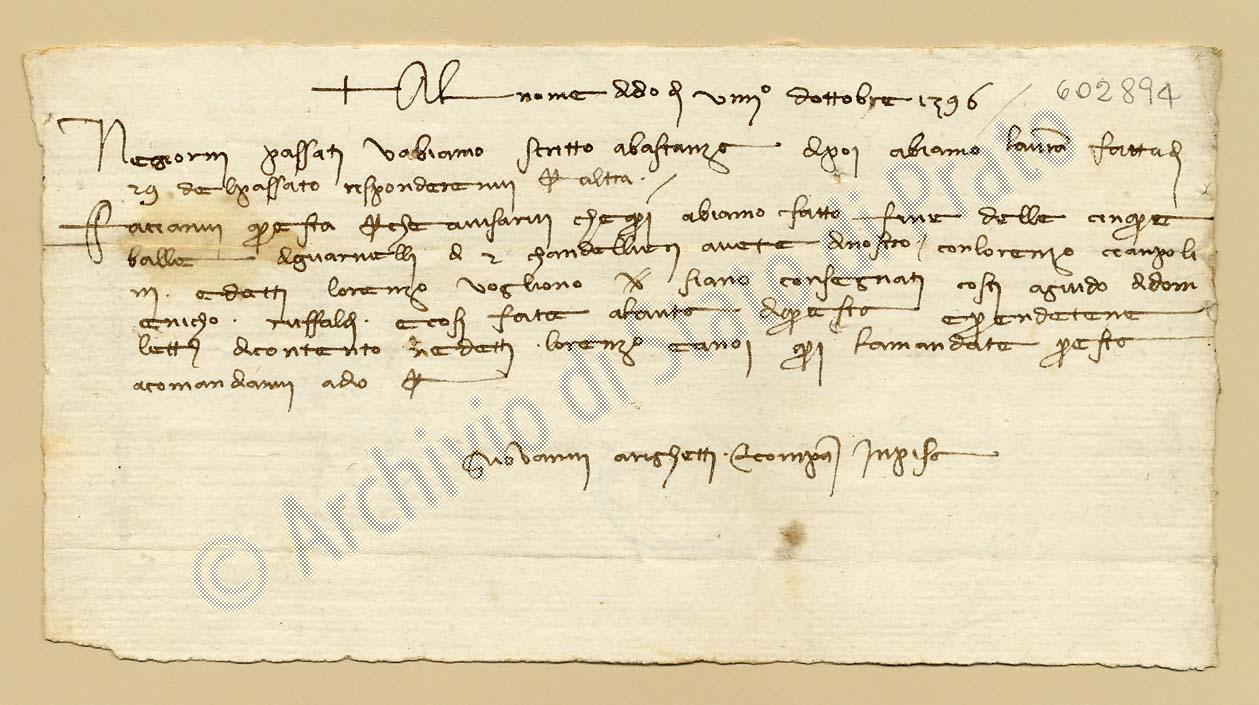 + Al nome di dio dì VIIII° d'ottobre 1396
602894
Ne giorni passati v'abiamo scritto a bastanza di poi abiamo la vostra fatta dì
29 del passato risponderenvi per altra
Faciamvi questa perché avisarvi che qui abiamo fatto fine delle cinque
balle di guarnelli di 2 chandellieri avete di nostro con Lorenzo Cianpoli
ni e detti Lorenzo vogliono siano consegnati costì a guido di dom
enicho e così fate abiante questa e prendetene
lettera di contento ne detti Lorenzo e a noi qui la mandate presto
acomandianvi a dio per
Giovanni Arighetti e compagni in Pisa
© Archivio di Stato di Prato